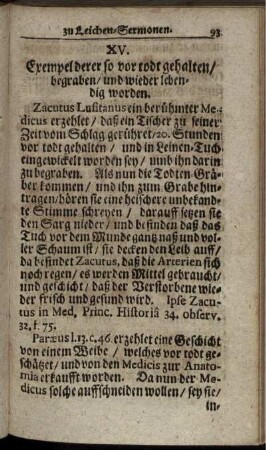 zu Leichen-Sermonen. 93
XV.
Exempel derer so vor todt gehalten/
begraben/ und wieder leben-
dig worden.
Zacutus Lusitanus ein berühmter Me-
dicus erzehlet/ daß ein Tischer zu seiner
Zeit vom Schlag gerühret/ 20. Stunden
vor todt gehalten/ und in Leinen-Tuch
eingewickelt worden sey/ nnb ihn darin
zu begraben. Als nun die Todten-Grä-
ber kommen/ und ihn zum Grabe hin-
tragen/ hören sie eine heischere unbekand-
te Stimme schreyen/ darauff setzen sie
den Sarg nieder/ und befinden daß das
Tuch vor dem Munde gantz naß und vol-
ler Schaum ist/ sie decken den Leib auff/
da befindet Zacutus, daß die Arterien sich
noch regen/ es werden Mittel gebraucht/
und geschicht/ daß der Verstorbene wie-
der frisch und gesund wird. Ipse Zacu-
tus in Med. Princ. Historiâ 34. observ.
32. f. 75.
Paræus l. 13. c. 46. erzehlet eine Geschicht
von einem Weibe/ welches vor todt ge-
schätzet/ und von den Medicis zur Anato-
mia erkaufft worden. Da nun der Me-
dicus solche auffschneiden wollen/ sey sie/
in-